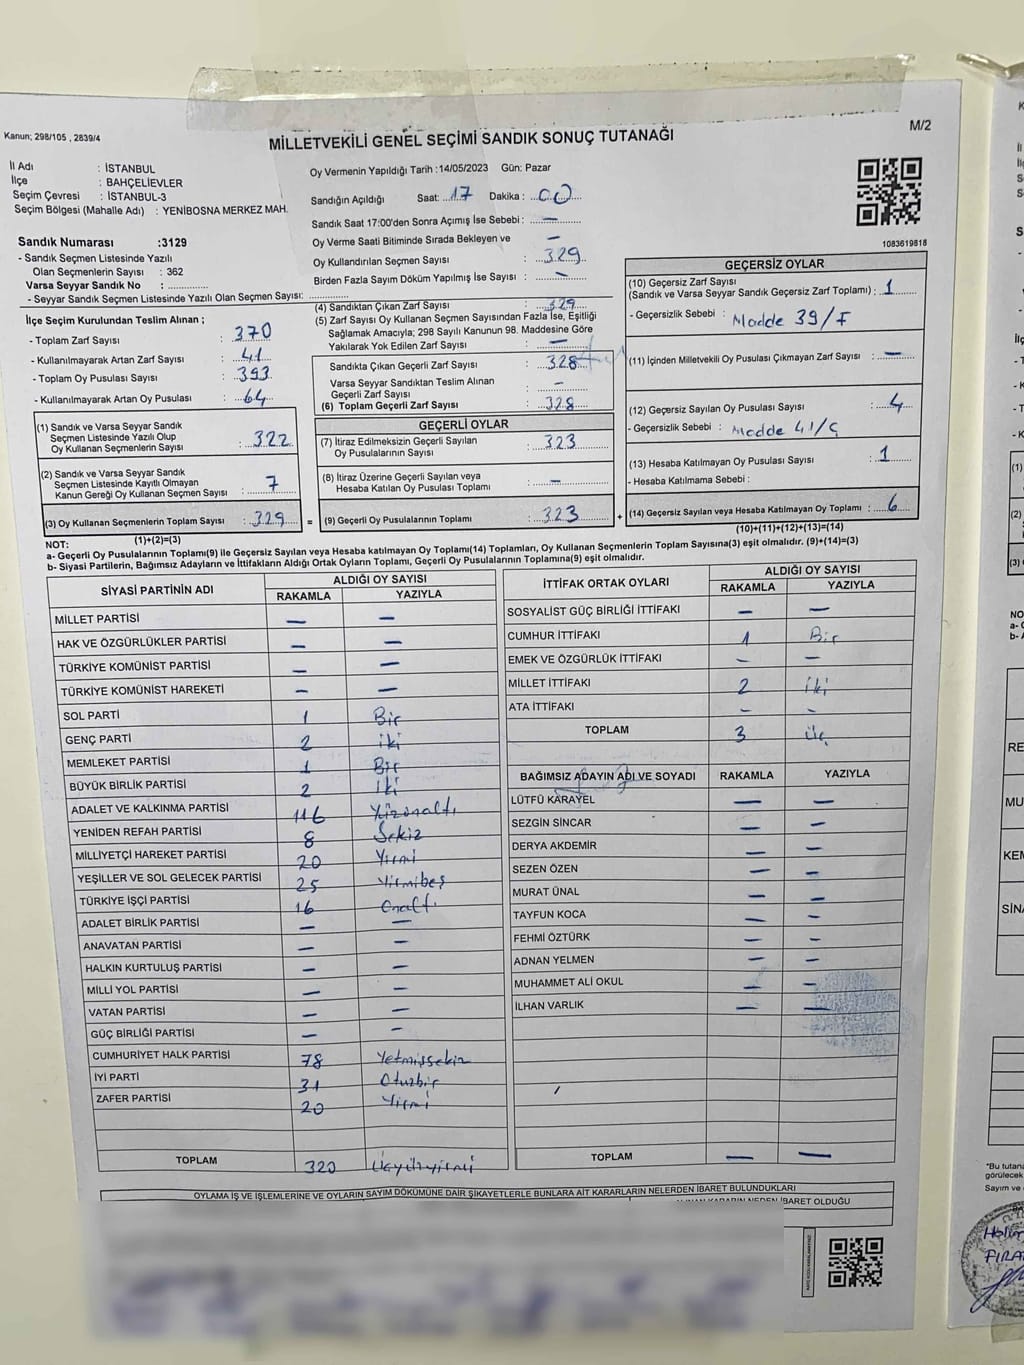 Kanun; 298/105 , 2839/4
MİLLETVEKİLİ GENEL SEÇİMİ SANDIK SONUÇ TUTANAĞI
M/2
İl Adı : İSTANBUL
İlçe : BAHÇELİEVLER
Seçim Çevresi : İSTANBUL-3
Seçim Bölgesi (Mahalle Adı) : YENİBOSNA MERKEZ MAH.
Sandık Numarası :3129
- Sandık Seçmen Listesinde Yazılı
Olan Seçmenlerin Sayısı : 362
Varsa Seyyar Sandık No :
- Seyyar Sandık Seçmen Listesinde Yazılı Olan Seçmen Sayısı:
Oy Vermenin Yapıldığı Tarih :14/05/2023 Gün: Pazar
Sandığın Açıldığı Saat: 17 Dakika: 00
Sandık Saat 17:00'den Sonra Açımış İse Sebebi : —
Oy Verme Saati Bitiminde Sırada Bekleyen ve —
Oy Kullandırılan Seçmen Sayısı : 329
Birden Fazla Sayım Döküm Yapılmış İse Sayısı : —
1083619818
İlçe Seçim Kurulundan Teslim Alınan ;
- Toplam Zarf Sayısı : 370
- Kullanılmayarak Artan Zarf Sayısı : 41
- Toplam Oy Pusulası Sayısı : 393
- Kullanılmayarak Artan Oy Pusulası : 64
(1) Sandık ve Varsa Seyyar Sandık
Seçmen Listesinde Yazılı Olup
Oy Kullanan Seçmenlerin Sayısı : 322
(2) Sandık ve Varsa Seyyar Sandık
Seçmen Listesinde Kayıtlı Olmayan
Kanun Gereği Oy Kullanan Seçmen Sayısı : 7
(3) Oy Kullanan Seçmenlerin Toplam Sayısı : 329
(1)+(2)=(3)
(4) Sandıktan Çıkan Zarf Sayısı : 329
(5) Zarf Sayısı Oy Kullanan Seçmen Sayısından Fazla İse, Eşitliği
Sağlamak Amacıyla; 298 Sayılı Kanunun 98. Maddesine Göre
Yakılarak Yok Edilen Zarf Sayısı : —
Sandıkta Çıkan Geçerli Zarf Sayısı : 328
Varsa Seyyar Sandıktan Teslim Alınan
Geçerli Zarf Sayısı : —
(6) Toplam Geçerli Zarf Sayısı : 328
GEÇERLİ OYLAR
(7) İtiraz Edilmeksizin Geçerli Sayılan
Oy Pusulalarının Sayısı : 323
(8) İtiraz Üzerine Geçerli Sayılan veya
Hesaba Katılan Oy Pusulası Toplamı : —
= (9) Geçerli Oy Pusulalarının Toplamı : 323 +
GEÇERSİZ OYLAR
(10) Geçersiz Zarf Sayısı
(Sandık ve Varsa Seyyar Sandık Geçersiz Zarf Toplamı) : 1
- Geçersizlik Sebebi : Madde 39/F
(11) İçinden Milletvekili Oy Pusulası Çıkmayan Zarf Sayısı : —
(12) Geçersiz Sayılan Oy Pusulası Sayısı : 4
- Geçersizlik Sebebi : Madde 41/Ç
(13) Hesaba Katılmayan Oy Pusulası Sayısı : 1
- Hesaba Katılmama Sebebi :
(14) Geçersiz Sayılan veya Hesaba Katılmayan Oy Toplamı : 6
(10)+(11)+(12)+(13)=(14)
NOT:
a- Geçerli Oy Pusulalarının Toplamı(9) ile Geçersiz Sayılan veya Hesaba katılmayan Oy Toplamı(14) Toplamları, Oy Kullanan Seçmenlerin Toplam Sayısına(3) eşit olmalıdır. (9)+(14)=(3)
b- Siyasi Partilerin, Bağımsız Adayların ve İttifakların Aldığı Ortak Oyların Toplamı, Geçerli Oy Pusulalarının Toplamına(9) eşit olmalıdır.
SİYASİ PARTİNİN ADI ALDIĞI OY SAYISI
RAKAMLA YAZIYLA
MİLLET PARTİSİ — —
HAK VE ÖZGÜRLÜKLER PARTİSİ — —
TÜRKİYE KOMÜNİST PARTİSİ — —
TÜRKİYE KOMÜNİST HAREKETİ — —
SOL PARTİ 1 Bir
GENÇ PARTİ 2 iki
MEMLEKET PARTİSİ 1 Bir
BÜYÜK BİRLİK PARTİSİ 2 iki
ADALET VE KALKINMA PARTİSİ 116 Yüzonaltı
YENİDEN REFAH PARTİSİ 8 Sekiz
MİLLİYETÇİ HAREKET PARTİSİ 20 Yirmi
YEŞİLLER VE SOL GELECEK PARTİSİ 25 Yirmibeş
TÜRKİYE İŞÇİ PARTİSİ 16 Onaltı
ADALET BİRLİK PARTİSİ — —
ANAVATAN PARTİSİ — —
HALKIN KURTULUŞ PARTİSİ — —
MİLLİ YOL PARTİSİ — —
VATAN PARTİSİ — —
GÜÇ BİRLİĞİ PARTİSİ — —
CUMHURİYET HALK PARTİSİ 78 Yetmişsekiz
İYİ PARTİ 31 Otuzbir
ZAFER PARTİSİ 20 Yirmi
TOPLAM 320 Üçyüzyirmi
İTTİFAK ORTAK OYLARI ALDIĞI OY SAYISI
RAKAMLA YAZIYLA
SOSYALİST GÜÇ BİRLİĞİ İTTİFAKI — —
CUMHUR İTTİFAKI 1 Bir
EMEK VE ÖZGÜRLÜK İTTİFAKI — —
MİLLET İTTİFAKI 2 iki
ATA İTTİFAKI — —
TOPLAM 3 üç
BAĞIMSIZ ADAYIN ADI VE SOYADI RAKAMLA YAZIYLA
LÜTFÜ KARAYEL — —
SEZGİN SİNCAR — —
DERYA AKDEMİR — —
SEZEN ÖZEN — —
MURAT ÜNAL — —
TAYFUN KOCA — —
FEHMİ ÖZTÜRK — —
ADNAN YELMEN — —
MUHAMMET ALİ OKUL — —
İLHAN VARLIK — —
TOPLAM — —
OYLAMA İŞ VE İŞLEMLERİNE VE OYLARIN SAYIM DÖKÜMÜNE DAİR ŞİKAYETLERLE BUNLARA AİT KARARLARIN NELERDEN İBARET BULUNDUKLARI
KARARIN NEDEN İBARET OLDUĞU